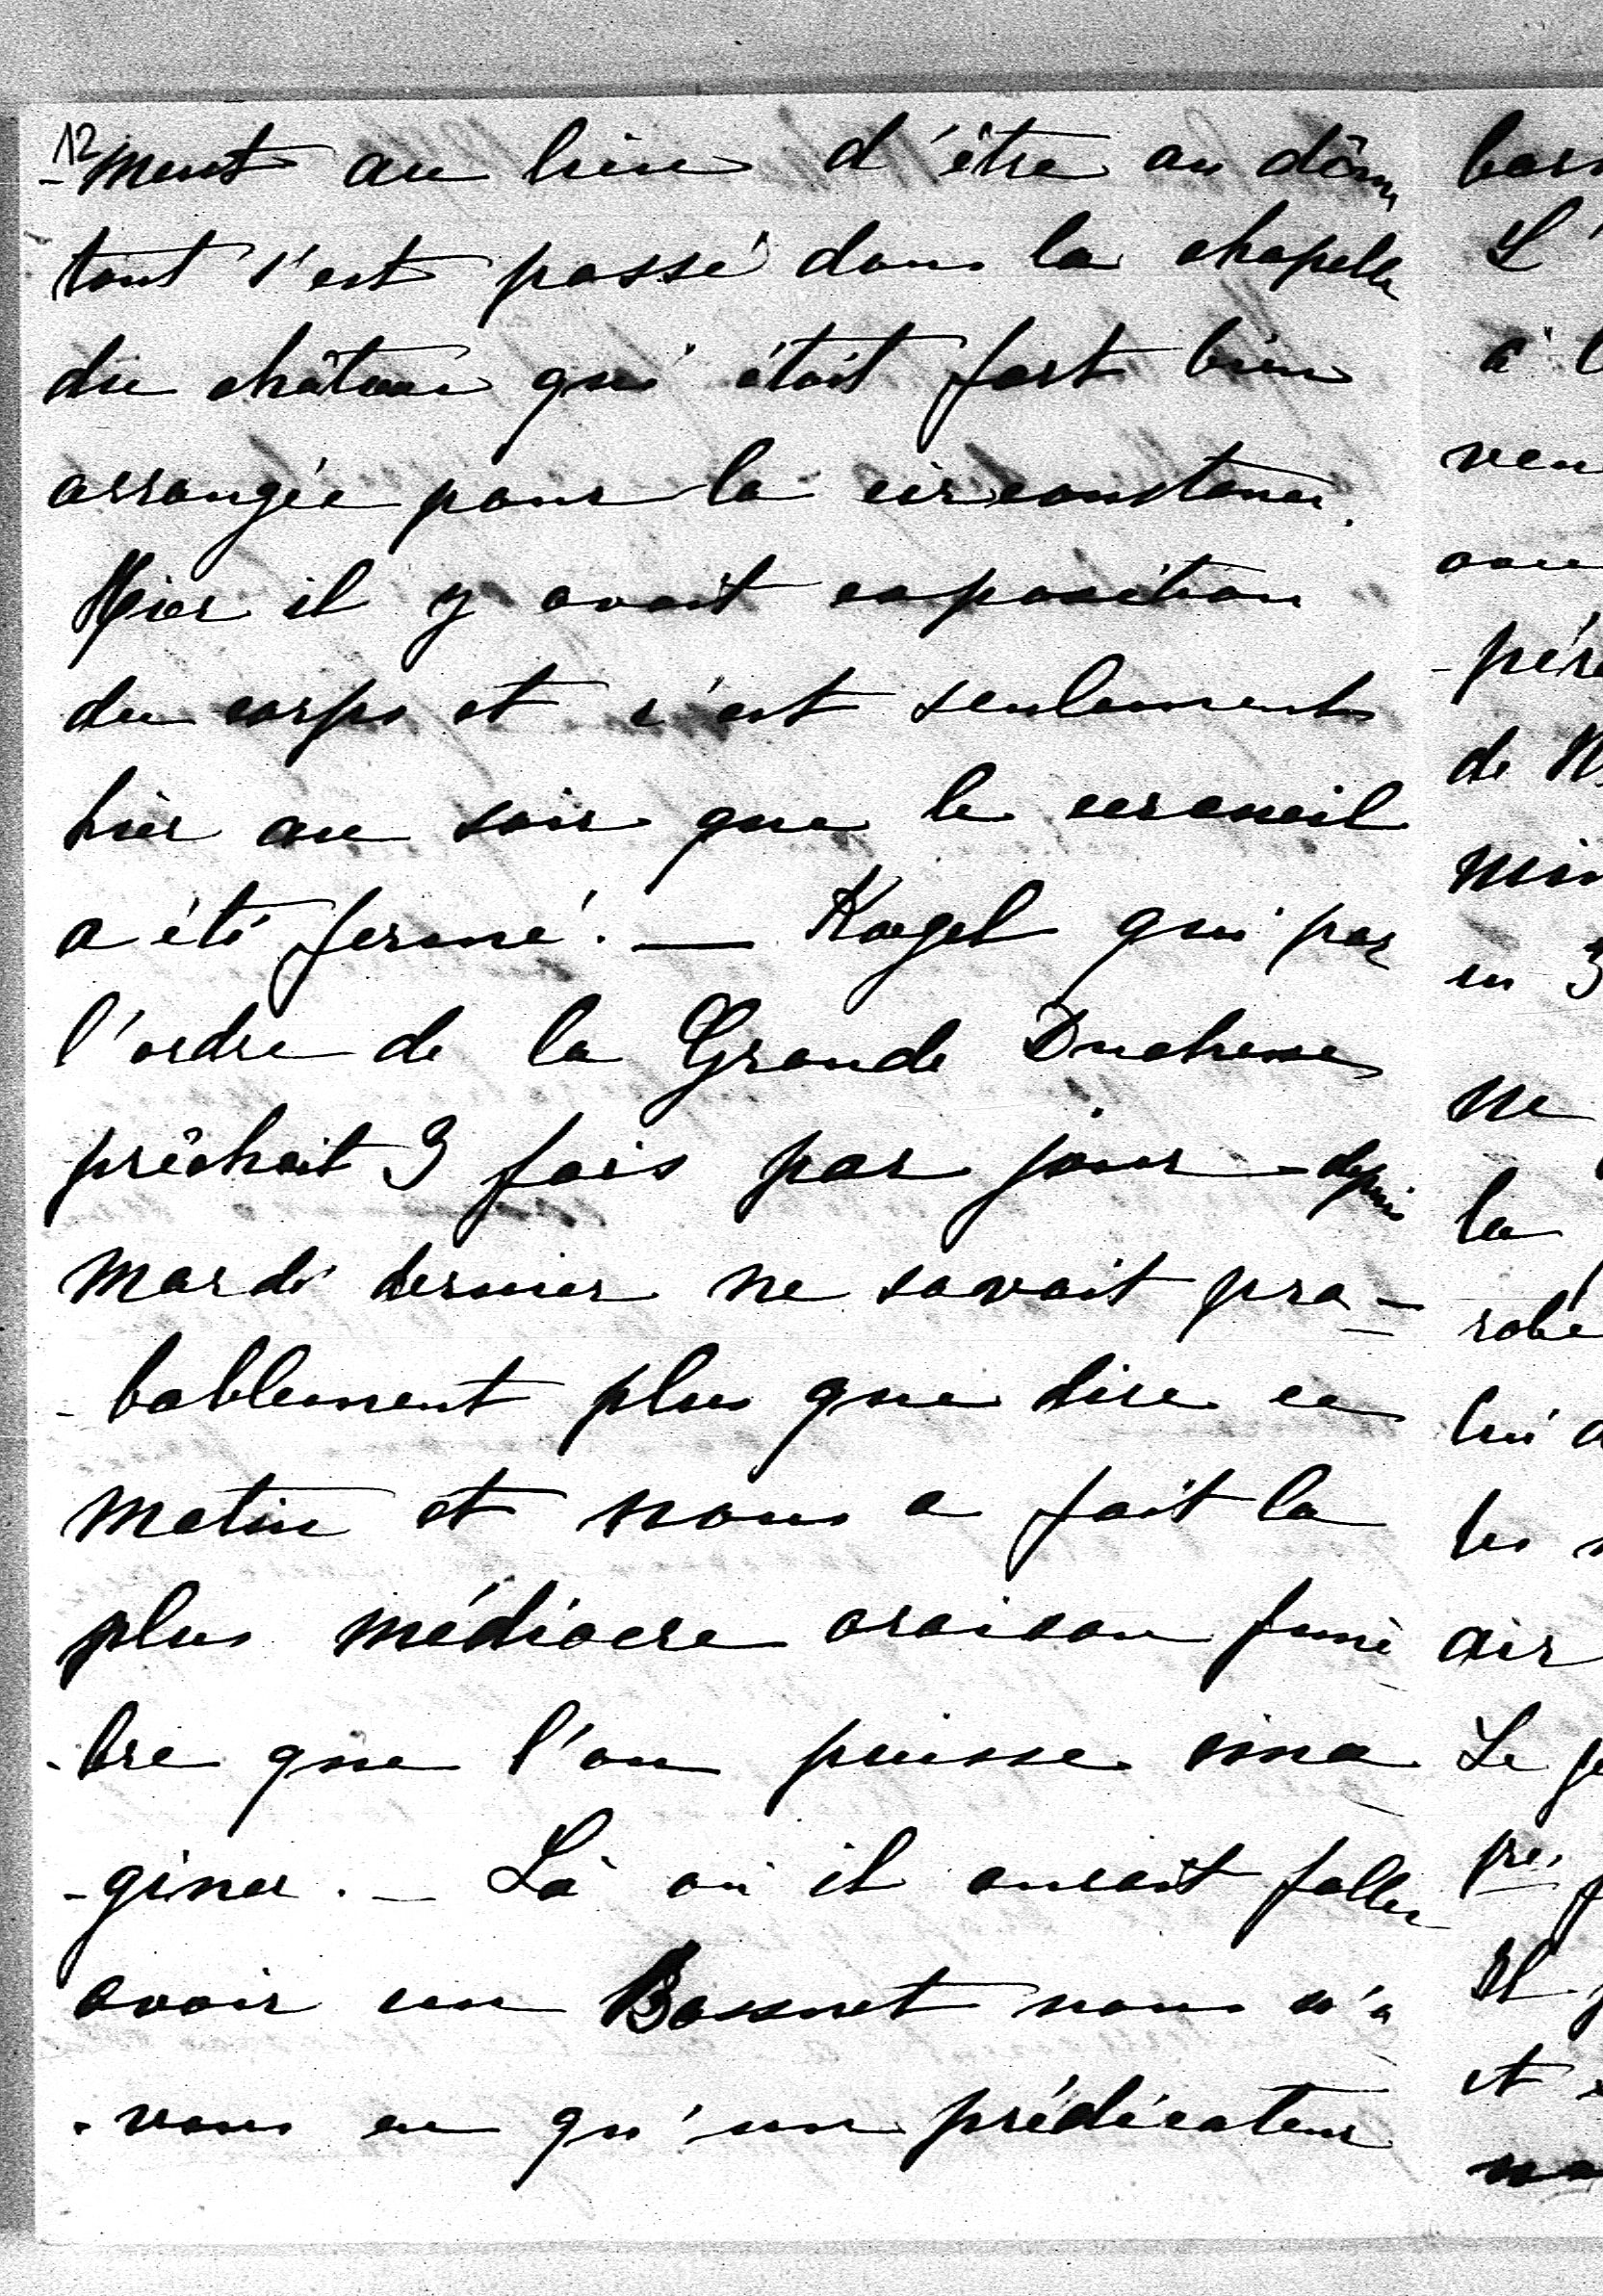 12
-ment au lieu d'être au dôme
tout s'est passé dans la chapelle
du château qui était fort bien
arrangée pour la circonstance.
Hier il y avait exposition
du corps et c'est seulement
hier au soir que le cercueil
a été fermé. — Kögel qui par
l'ordre de la Grande Duchesse
prêchait 3 fois par jour depuis
mardi dernier ne savait pro-
-bablement plus que dire ce
matin et nous a fait la
plus médiocre oraison funè-
-bre que l'on puisse ima-
-giner. — Là où il aurait fallu
avoir un Bossuet nous n'a-
-vons eu qu'un prédicateur
L'
à
de
min
en 3
ne
la
robe
lui
les
air
Le
Il
et